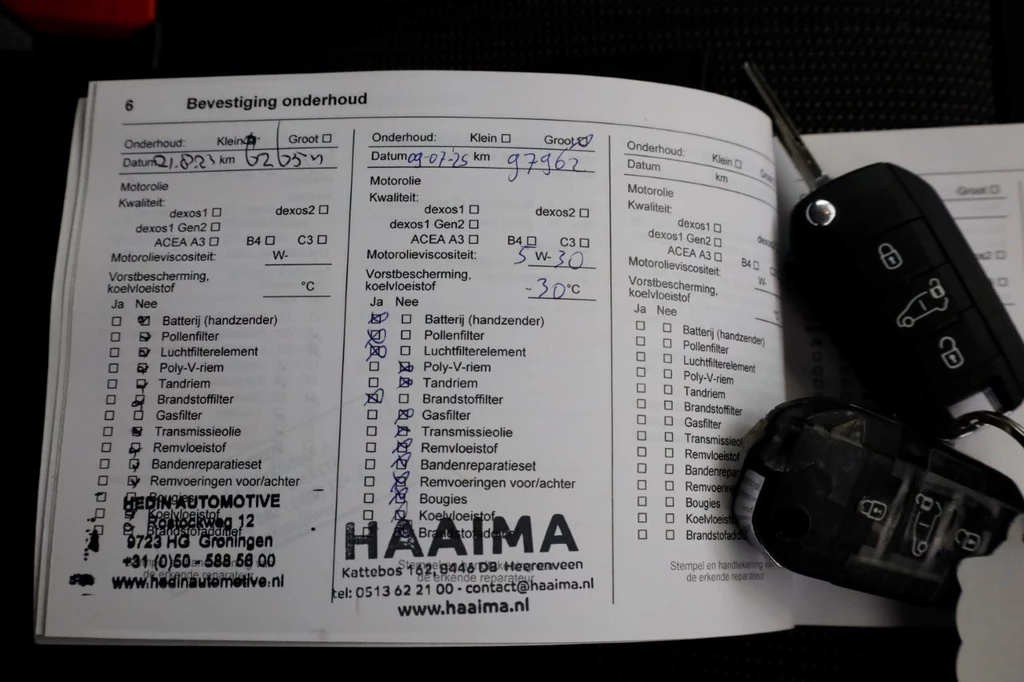 6 Bevestiging onderhoud
Onderhoud: Klein Groot
Datum 21.8.23 km
Motorolie
Kwaliteit:
dexos1 dexos2
dexos1 Gen2
ACEA A3 B4 C3
Motorolieviscositeit: W-
Vorstbescherming,
koelvloeistof °C
Ja Nee
Batterij (handzender)
Pollenfilter
Luchtfilterelement
Poly-V-riem
Tandriem
Brandstoffilter
Gasfilter
Transmissieolie
Remvloeistof
Bandenreparatieset
Remvoeringen voor/achter
Bougies
Koelvloeistof
Brandstofadditief
HEDIN AUTOMOTIVE
Rostockweg 12
9723 HG Groningen
+31 (0)50 - 588 58 00
www.hedinautomotive.nl
de erkende reparateur
Onderhoud: Klein Groot
Datum 09-07-25 km 97962
Motorolie
Kwaliteit:
dexos1 dexos2
dexos1 Gen2
ACEA A3 B4 C3
Motorolieviscositeit: 5 W-30
Vorstbescherming,
koelvloeistof -30°C
Ja Nee
Batterij (handzender)
Pollenfilter
Luchtfilterelement
Poly-V-riem
Tandriem
Brandstoffilter
Gasfilter
Transmissieolie
Remvloeistof
Bandenreparatieset
Remvoeringen voor/achter
Bougies
Koelvloeistof
HAAIMA
Kattebos 162, 8446 DB Heerenveen
de erkende reparateur
tel: 0513 62 21 00 - contact@haaima.nl
www.haaima.nl
Onderhoud: Klein
Datum km
Motorolie
Kwaliteit:
dexos1
dexos1 Gen2
ACEA A3 B4
Motorolieviscositeit: W-
Vorstbescherming,
koelvloeistof
Ja Nee
Batterij (handzender)
Pollenfilter
Luchtfilterelement
Poly-V-riem
Tandriem
Brandstoffilter
Gasfilter
Transmissieol
Remvloeist
Bandenrepar
Remvoerin
Bougies
Koelvloeist
Brandstofad
Stempel en handtekening va
de erkende reparateur
Groot